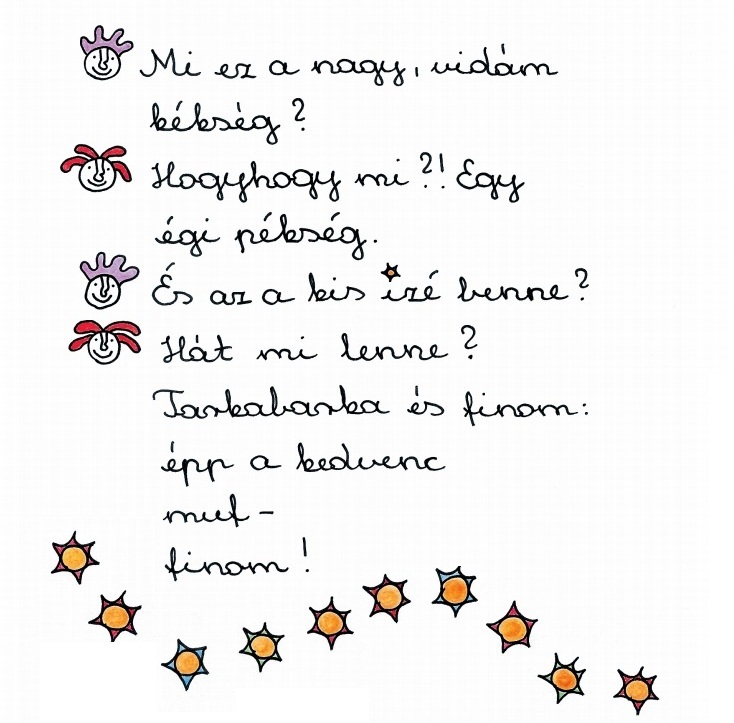 Mi ez a nagy, vidám
kékség?
Hogyhogy mi?! Egy
égi pékség.
És az a kis izé benne?
Hát mi lenne?
Tarkabarka és finom:
épp a kedvenc
muf-
finom!